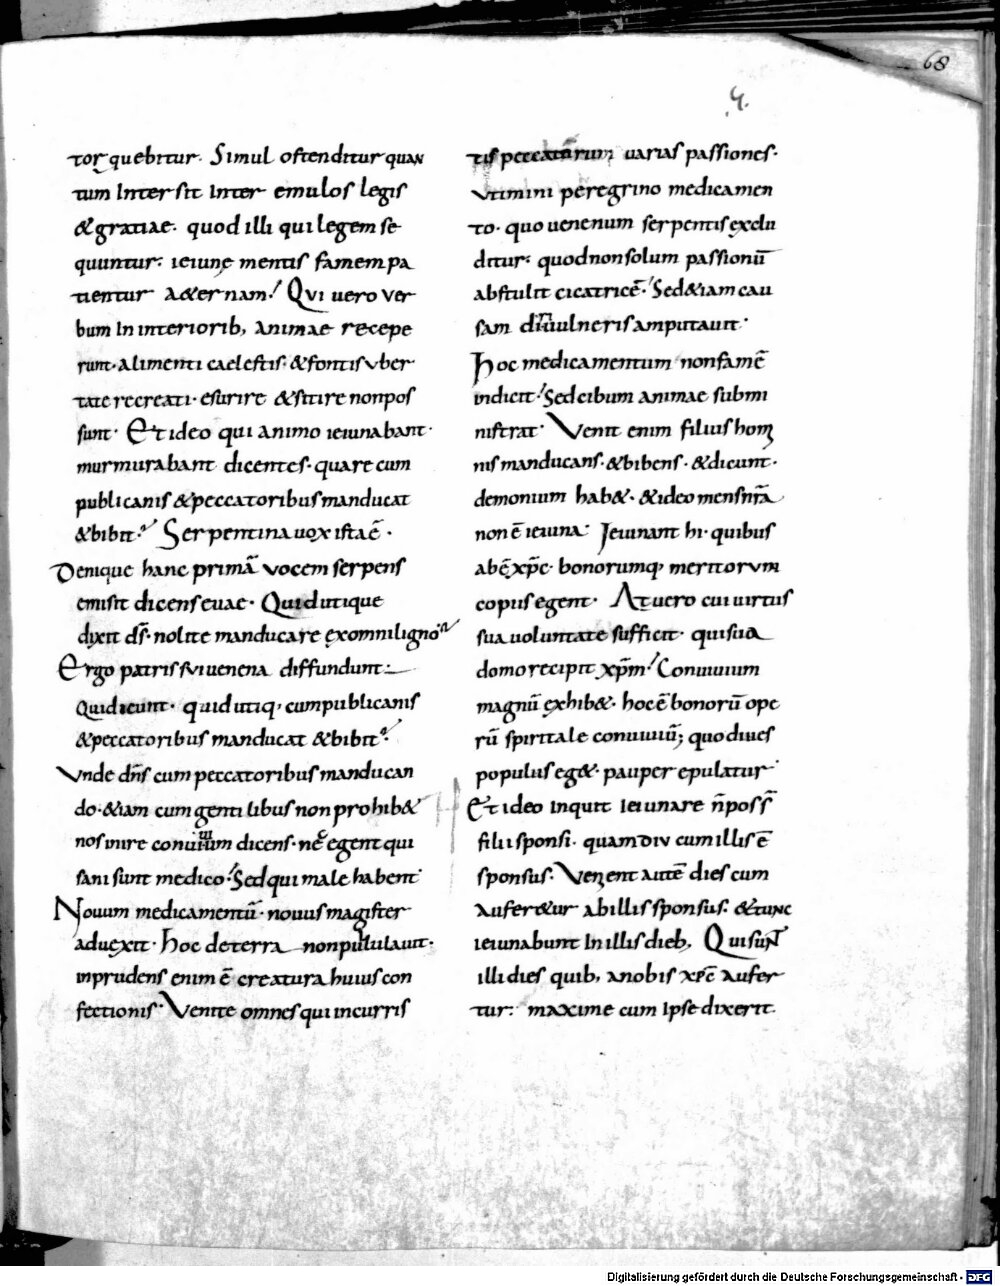 68
4.
tor quebitur. Simul ostenditur quan
tum Inter sit Inter emulos legis
&gratiae. quod illi qui legem se
quuntur: ieiunę mentis famem pa
tientur a&ernam! Qui uero ver
bum In interiorib, animae recepe
runt. alimenti caelestis. &fontis vber
tate recreati. esurire &sitire non pos
sunt. Et ideo qui animo ieiunabant.
murmurabant dicentes. quare cum
publicanis &peccatoribus manducat
&bibit? Serpentina uox ista ē.
Denique hanc primā vocem serpens
emisit dicens euae. Quid utique
dixit d̄s. nolite manducare ex omni ligno?
Ergo patris sui uenena diffundunt.
Quid dicunt. quid utiq, cum publicanis
&peccatoribus manducat &bibit?
Vnde dn̄s cum peccatoribus manducan
do. &iam cum gentilibus non prohib&
nos inire conuiuium dicens. nē egent qui
sani sunt medico! Sed qui male habent
Nouum medicamentū. nouus magister
aduexit. hoc de terra non pullulauit.
inprudens enim ē creatura huius con
fectionis. Venite omnes qui incurris
tis peccatorum uarias passiones.
Vtimini peregrino medicamen
to. quo uenenum serpentis exclu
ditur: quod non solum passionū
abstulit cicatricē! Sed &iam cau
sam diri uulneris amputauit.
Hoc medicamentum non famē
indicit! Sed cibum animae submi
nistrat. Venit enim filius homi
nis manducans. &bibens. &dicunt.
demonium hab&. &ideo mens nr̄a
non ē ieiuna. Ieiunant hi. quibus
abē xp̄c. bonorumq, meritorum
copus egent. At uero cui uirtus
sua uoluntate sufficit. qui sua
domo recipit xp̄m! Conuiuium
magnū exhib&. hoc ē bonorū ope
rū spiritale conuiuiū; quo diues
populus eg&. pauper epulatur
Et ideo inquit ieiunare n̄ poss̄
filii sponsi. quamdiv cum illis ē
sponsus. Venent autē dies cum
Auferetur ab illis sponsus. &tunc
ieiunabunt In illis dieb, Qui sunt
illi dies quib, a nobis xp̄c aufer
tur: maxime cum Ipse dixerit.
Digitalisierung gefördert durch die Deutsche Forschungsgemeinschaft - DFG